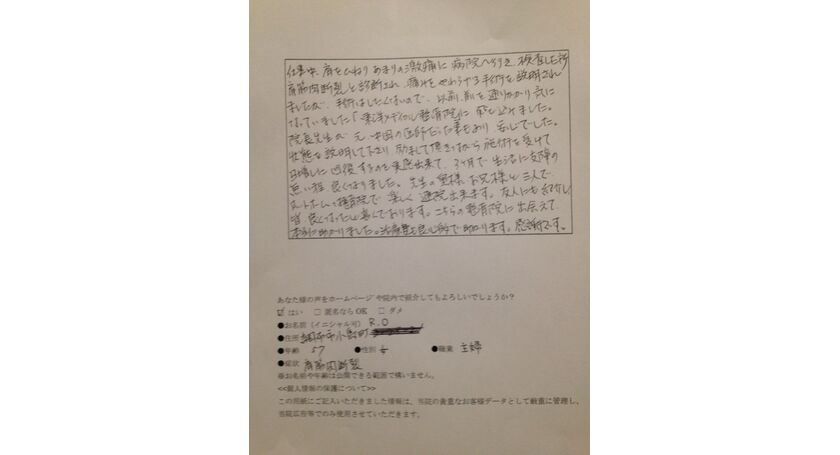 仕事中、肩をひねり あまりの激痛に 病院へ行き、検査した所
肩筋肉断裂と診断され、痛みをやわらげる手術を説明され
ましたが、手術はしたくないので、以前、前を通りかかり気に
なっていました「東洋メディカル整骨院」に 飛び込みました。
院長先生が 元、中国の医師だった事もあり 安心でした。
状態を説明して下さり 励まして頂きながら 施術を受けて
日増しに 回復するのを実感出来て、3ヶ月で 生活に支障の
無い程 良くなりました。先生の奥様、お兄様と三人で
アットホームな整骨院で 楽しく 通院出来ます。友人にも紹介し
皆 良くなったと喜んでおります。こちらの整骨院に出会えて
本当に助かりました。治療費も良心的で助かります。感謝です。
あなた様の声をホームページや院内で紹介してもよろしいでしょうか?
☑ はい □ 匿名ならOK □ ダメ
●お名前(イニシャル可) R.O
●住所 調布市小島町
●年齢 57 ●性別 女 ●職業 主婦
●症状 肩筋肉断裂
※お名前や年齢は公開できる範囲で構いません。
<<個人情報の保護について>>
この用紙にご記入いただきました情報は、当院の貴重なお客様データとして厳重に管理し、
当院広告等でのみ使用させていただきます。